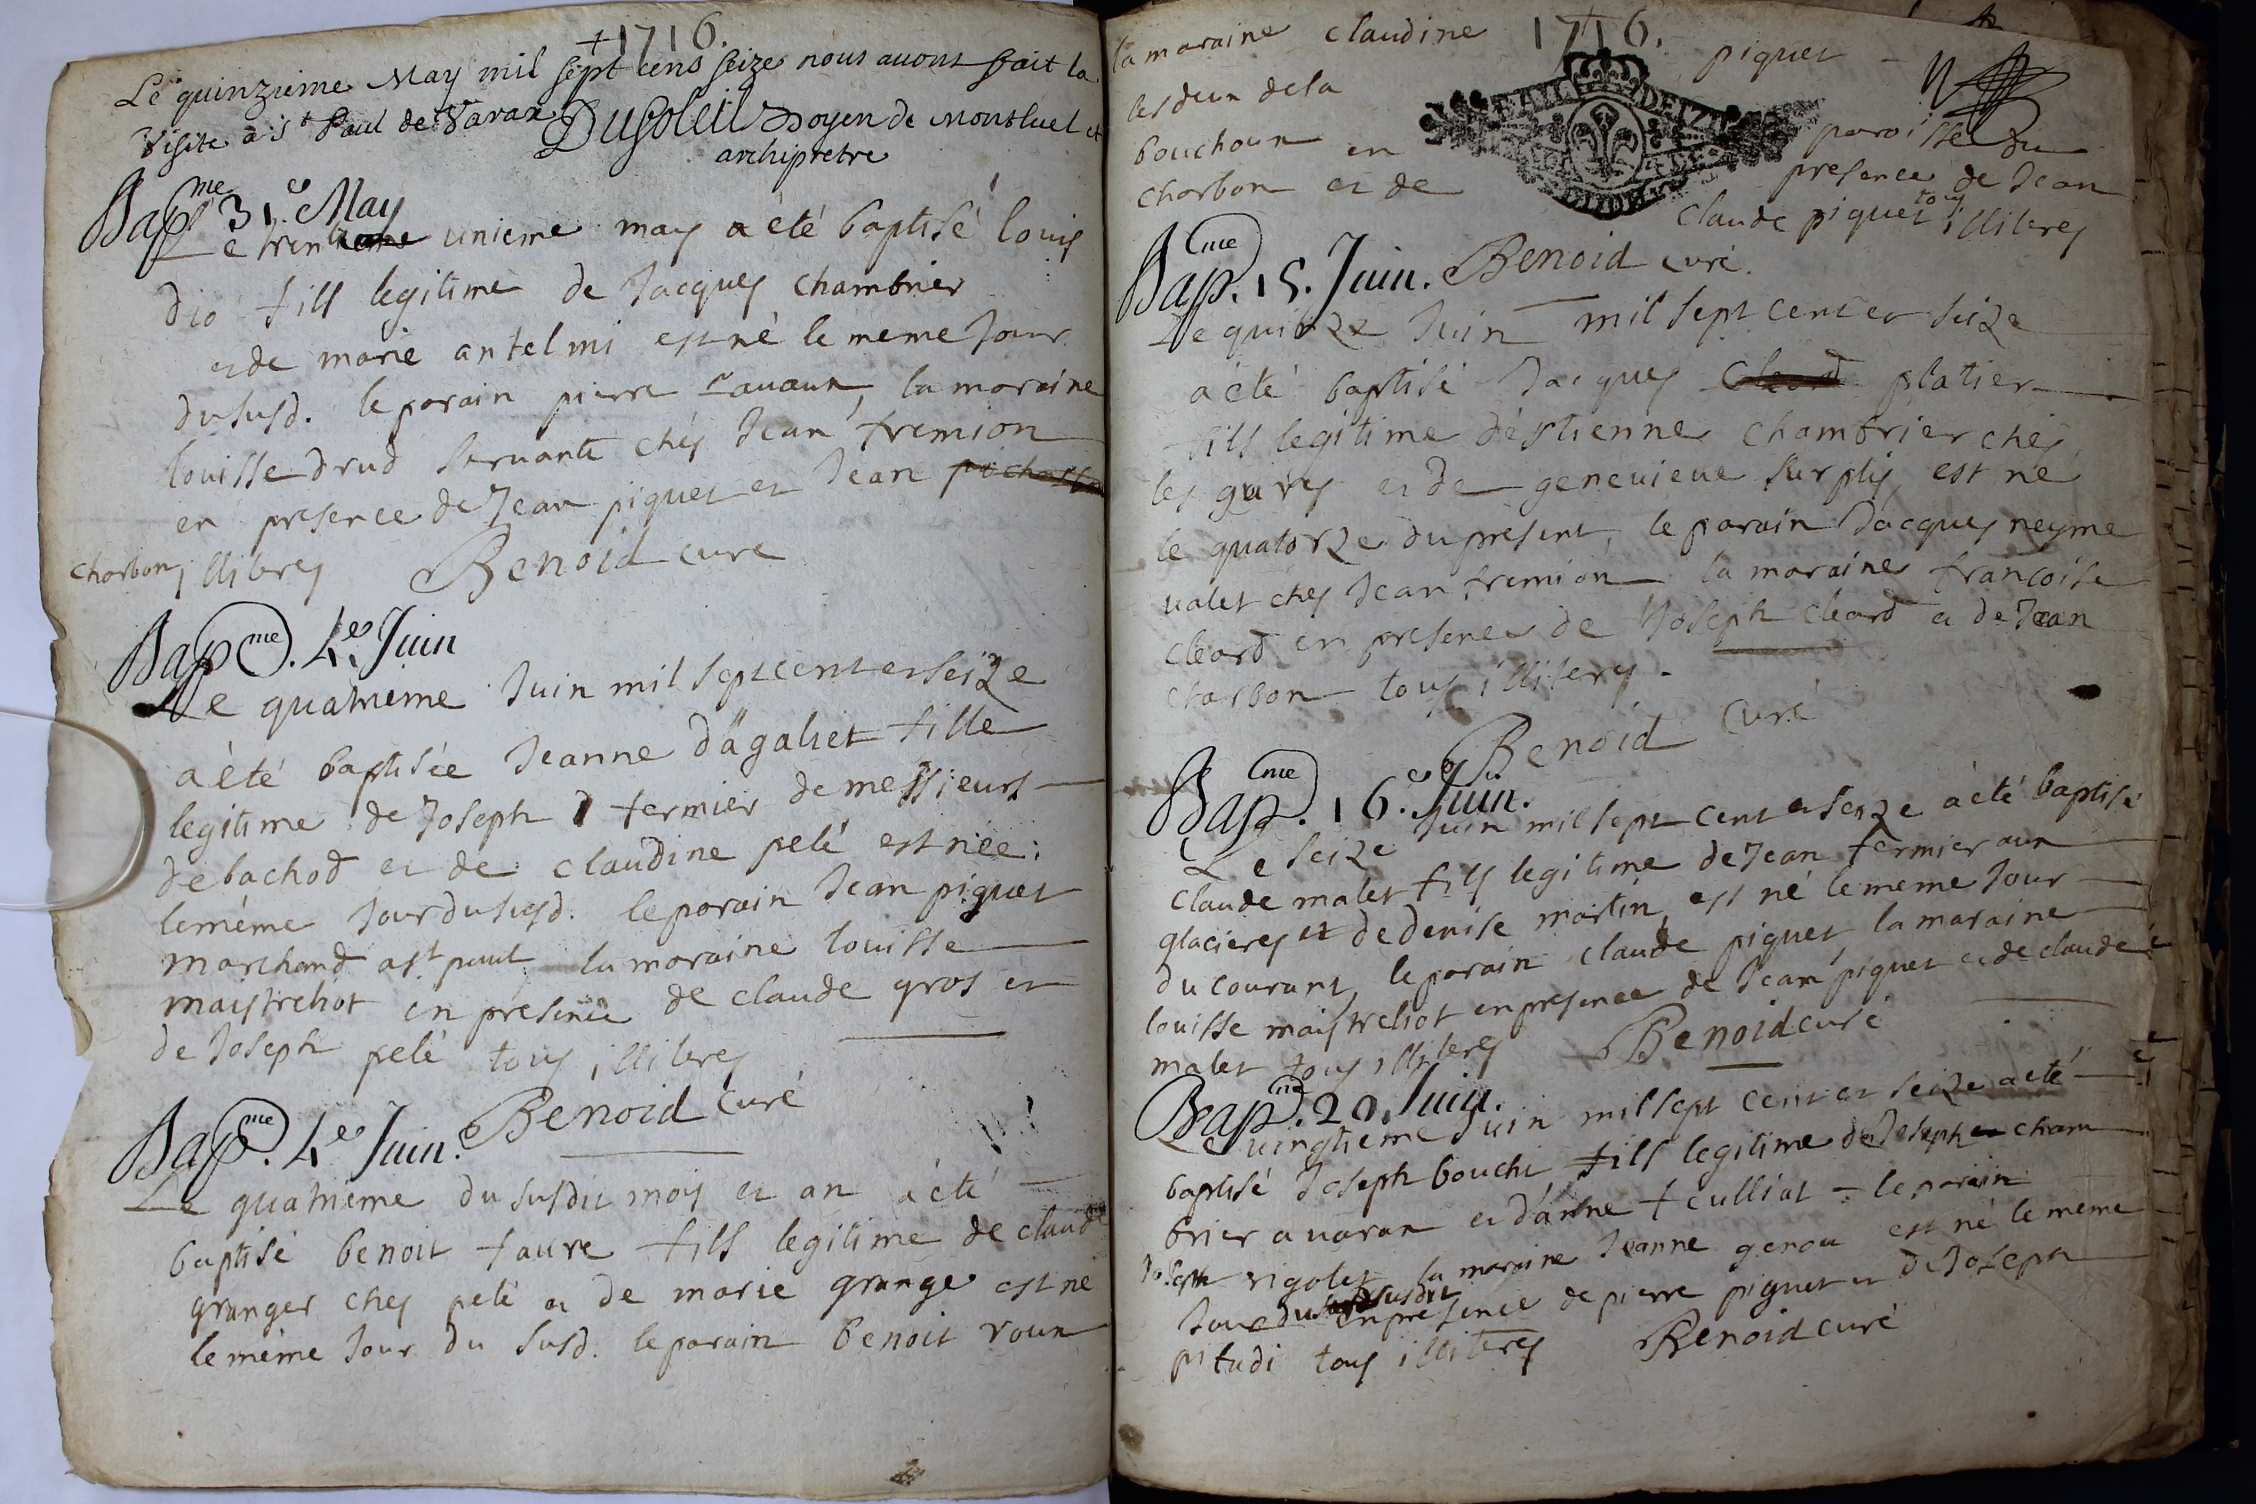 1716.
Le quinzieme May mil sept cens seize nous avons fait la
visite a St Paul de Varax Dusoleil Doyen de Montluel et
archipretre
Bapme 31e May
Le trent unieme may a été baptisé louis
dio fils legitime de Jacques chambrier
et de marie antelmi est né le meme Jour
dusud. le parain pierre la maraine
louisse drud servante chés Jean fremion
en presence de Jean piquet et Jean
charbon, illiteres Benoid curé
Bapme. 4e Juin
Le quatrieme Juin mil sept cent et seize
a été baptisée Jeanne dagaliet fille
legitime de Joseph fermier de messieurs
de bachod et de claudine pelé est née
le méme Jour du susd. le parain Jean piquet
marchand a st paul la maraine louisse
maistrehot en presence de claude gros et
de Joseph pelé tous illiteres
Benoid curé
Bapme. 4e Juin.
Le quatrieme du susdit moys et an a été
baptisé benoit faure fils legitime de claude
granger ches pelé et de marie grange est né
le méme Jour du susd. le parain benoit roux
1716.
la maraine claudine piquet
les deux de la paroisse du
bouchoux en presence de Jean
charbon et de claude piquet tous illiteres
Benoid curé.
Bapme. 15. Juin.
Le quinze Juin mil sept cent et seize
a été baptisé Jacques platier
fils legitime d'estienne chambrier ches
les et de genevieve surplis est né
le quatorze du present, le parain Jacques neyme
valet ches Jean fremion la maraine francoise
cleard en presence de Joseph cleard et de Jean
charbon tous illiteres.
Benoid Curé
Bapme. 16e. Juin.
Le seize Juin mil sept cent et seize a été baptisé
claude malet fils legitime de Jean fermier aux
glacieres et de denise martin, est né le meme Jour
du courant, le parain claude piquet la maraine
louisse maistrehot en presence de Jean piquet et de claude
malet tous illiteres Benoid curé
Bapme. 20. Juin.
Le vingtieme Juin mil sept cent et seize a eté
baptisé Joseph bouchi fils legitime de Joseph cham
brier a varax et d'anne teulliat le parain
Joseph rigolet la maraine Jeanne genou est né le meme
Jour du susdit en presence de pierre piquet et de Joseph
pitudi tous illiteres Benoid curé